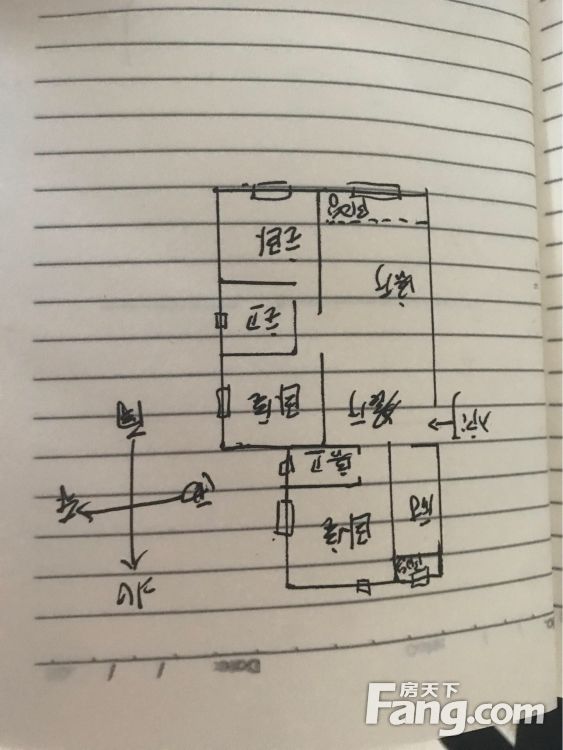 Date
阳台
北
卧室
西
东
客卫
南
餐厅
卧室
主卫
客厅
主卧
阳台
房天下
Fang.com